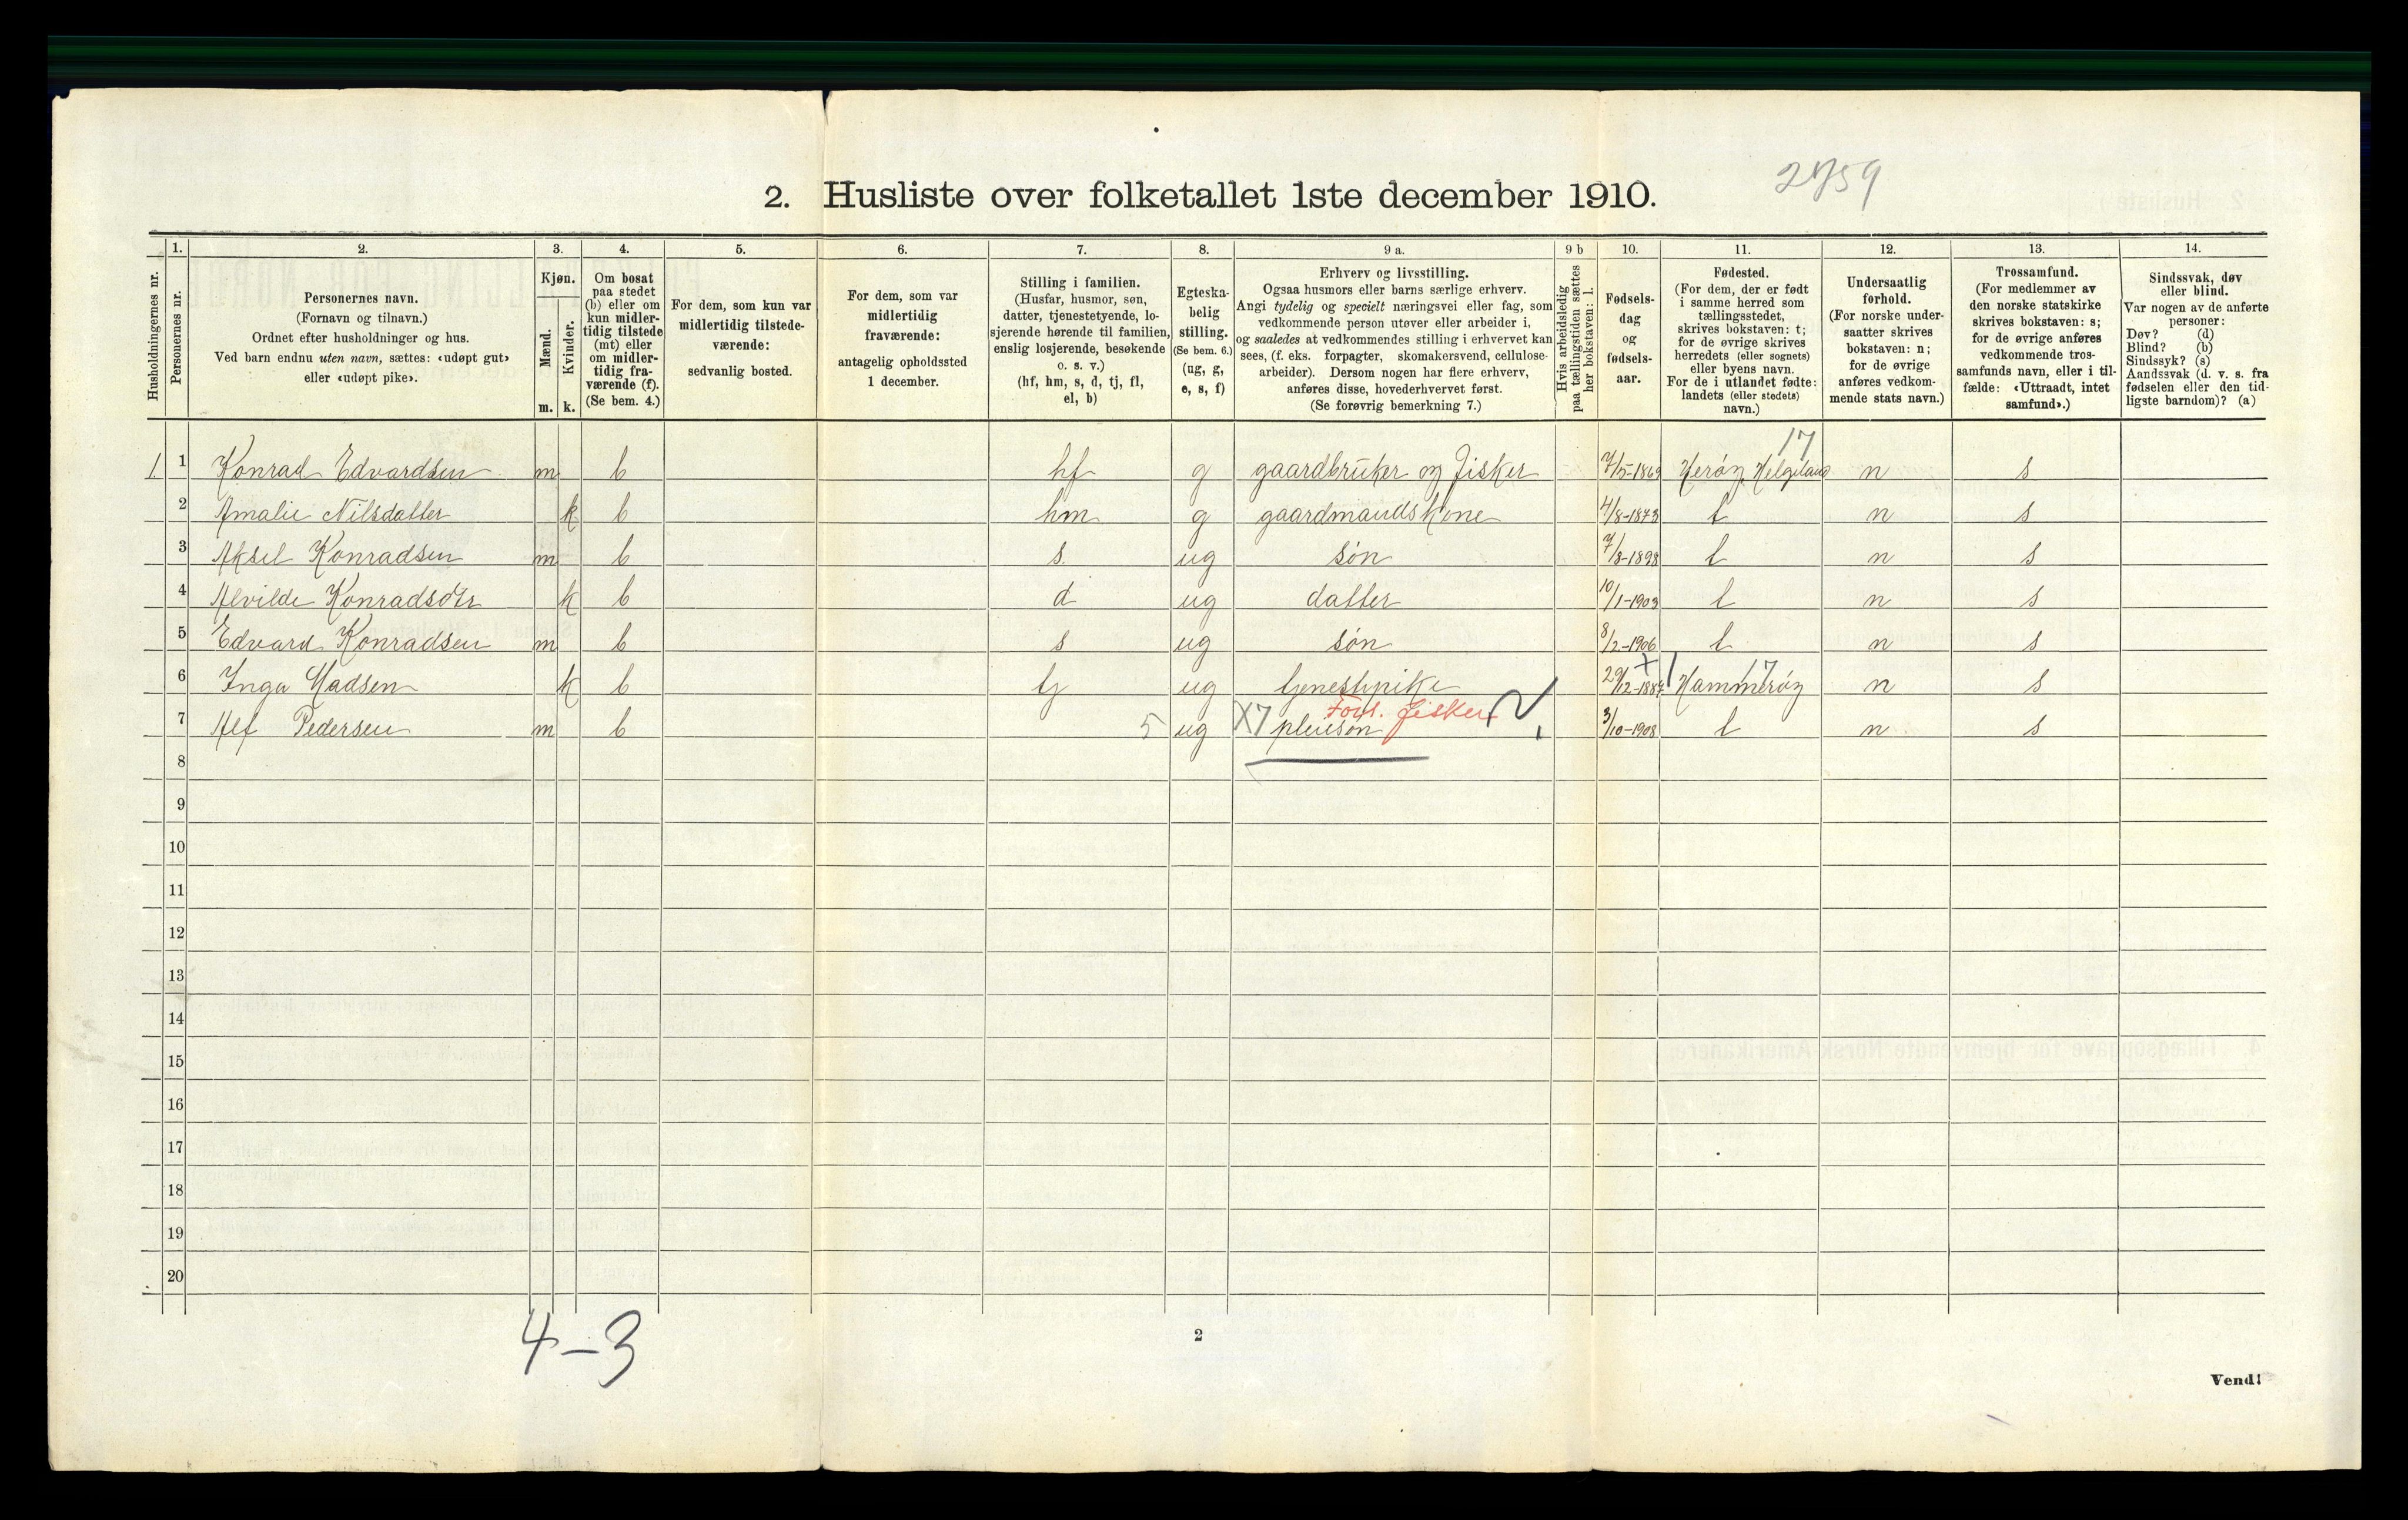 2759
2. Husliste over folketallet 1ste december 1910.
Husholdningernes nr.
1.
Personernes nr.
2.
Personernes navn.
(Fornavn og tilnavn.)
Ordnet efter husholdninger og hus.
Ved barn endnu uten navn, sættes: «udøpt gut»
eller «udøpt pike».
3.
Kjøn.
Mænd.
Kvinder.
m. k.
4.
Om bosat
paa stedet
(b) eller om
kun midler-
tidig tilstede
(mt) eller
om midler-
tidig fra-
værende (f).
(Se bem. 4.)
5.
For dem, som kun var
midlertidig tilstede-
værende:
sedvanlig bosted.
6.
For dem, som var
midlertidig
fraværende:
antagelig opholdssted
1 december.
7.
Stilling i familien.
(Husfar, husmor, søn,
datter, tjenestetyende, lo-
sjerende hørende til familien,
enslig losjerende, besøkende
o. s. v.)
(hf, hm, s, d, tj, fl,
el, b)
8.
Egteska-
belig
stilling.
(Se bem. 6.)
(ug, g,
e, s, f)
9 a.
Erhverv og livsstilling.
Ogsaa husmors eller barns særlige erhverv.
Angi tydelig og specielt næringsvei eller fag, som
vedkommende person utøver eller arbeider i,
og saaledes at vedkommendes stilling i erhvervet kan
sees, (f. eks. forpagter, skomakersvend, cellulose-
arbeider). Dersom nogen har flere erhverv,
anføres disse, hovederhvervet først.
(Se forøvrig bemerkning 7.)
9 b
Hvis arbeidsledig
paa tællingstiden sættes
her bokstaven: l.
10.
Fødsels-
dag
og
fødsels-
aar.
11.
Fødested.
(For dem, der er født
i samme herred som
tællingsstedet,
skrives bokstaven: t;
for de øvrige skrives
herredets (eller sognets)
eller byens navn.
For de i utlandet fødte:
landets (eller stedets)
navn.)
12.
Undersaatlig
forhold.
(For norske under-
saatter skrives
bokstaven: n;
for de øvrige
anføres vedkom-
mende stats navn.)
13.
Trossamfund.
(For medlemmer av
den norske statskirke
skrives bokstaven: s;
for de øvrige anføres
vedkommende tros-
samfunds navn, eller i til-
fælde: «Uttraadt, intet
samfund».)
14.
Sindssvak, døv
eller blind.
Var nogen av de anførte
personer:
Døv? (d)
Blind? (b)
Sindssyk? (s)
Aandssvak (d. v. s. fra
fødselen eller den tid-
ligste barndom)? (a)
17
1. 1 Konrad Edvardsen m b hf g gaardbruker og fisker 7/5-1869 Herøy, Helgeland n s
2 Amalie Nilsdatter k b hm g gaardmandskone 4/8-1873 t n s
3 Aksel Konradsen m b s. ug søn 7/8-1898 t n s
4 Alvilde Konradsdtr k b d ug datter 10/1-1903 t n s
5 Edvard Konradsen m b s ug søn 8/2-1906 t n s
17
6 Inga Madsen k b tj ug tjenestepike 29/12-1887 Hammerøy n s
Fors. fisker
7 Alf Pedersen m b 5 ug X7 pleiesøn 3/10-1908 t n s
8
9
10
11
12
13
14
15
16
17
18
19
20
4-3
2
Vend!